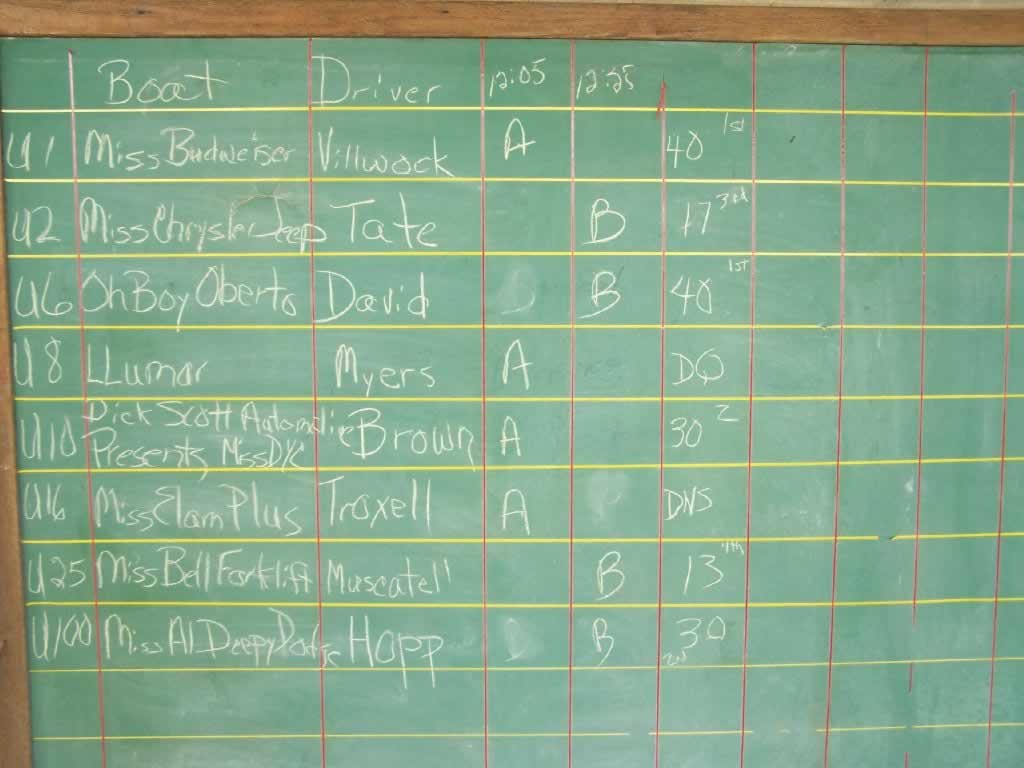 Boat Driver 12:05 12:25
U1 Miss Budweiser Villwock A 40 1st
U2 Miss Chrysler Jeep Tate B 17 3rd
U6 Oh Boy Oberto David B 40 1ST
U8 LLumar Myers A DQ
U10 Dick Scott Automotive
Presents, Miss DYC Brown A 30 2
U16 Miss Elam Plus Troxell A DNS
U25 Miss Bell Forklift Muscatell B 13 4th
U100 Miss Al Hopp B 30 2nd